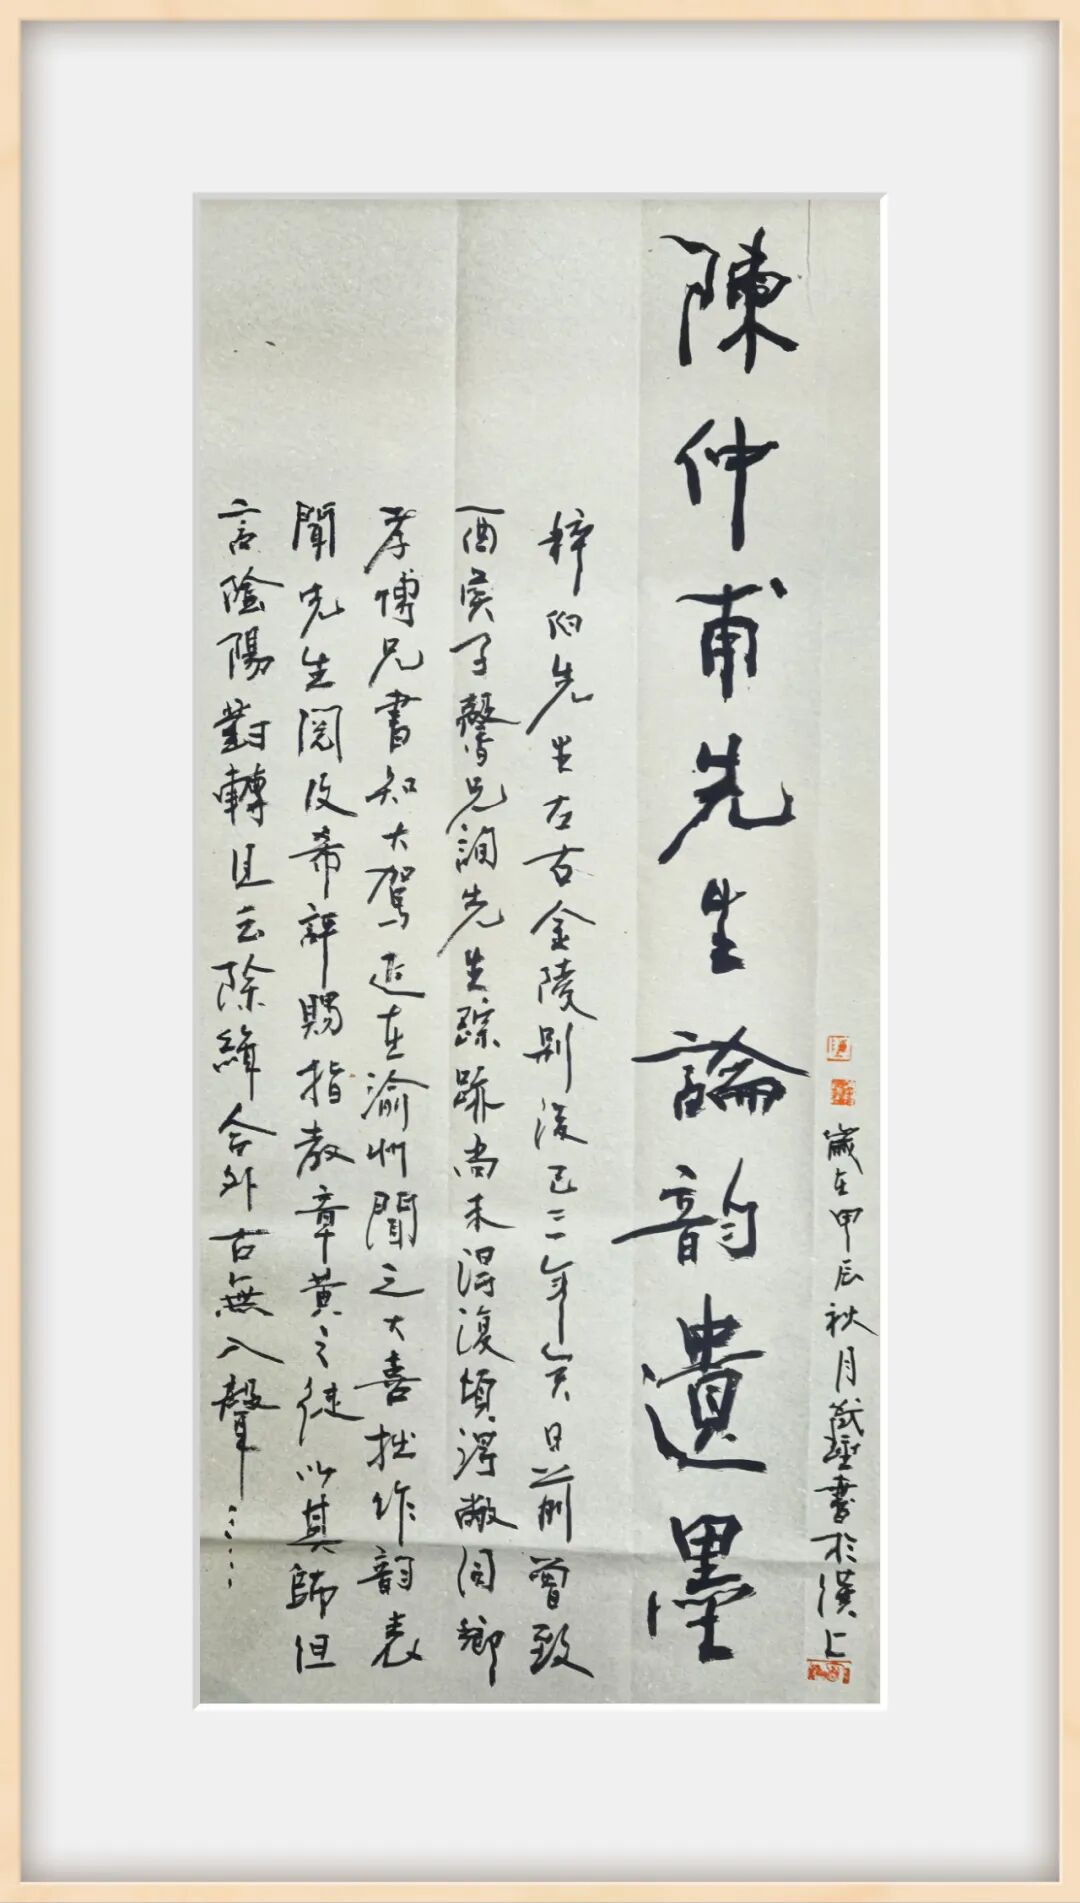 歲在甲辰秋月書於漢上
陳仲甫先生論韵遺墨
粹伯先生左右金陵別後已三年矣日前曾致
酉侯子馨兄詢先生踪跡尚未得復頃得敝同鄉
孝博兄書知大駕近在渝州聞之大喜拙作韵表
聞先生閱及希詳賜指教章黃之徒以其師但
言陰陽對轉且云除緝合外古無入聲……